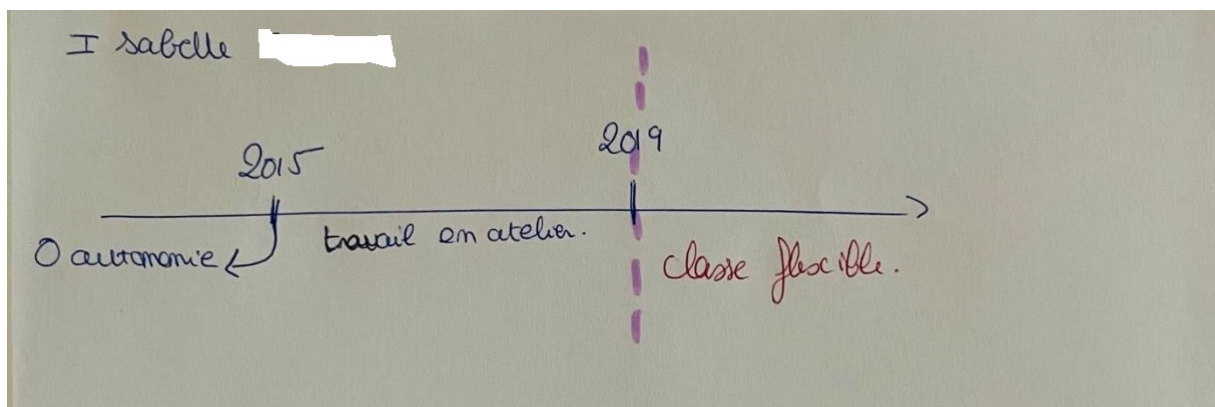 Isabelle
2015
2019
O autonomie
travail en atelier.
classe flexible.